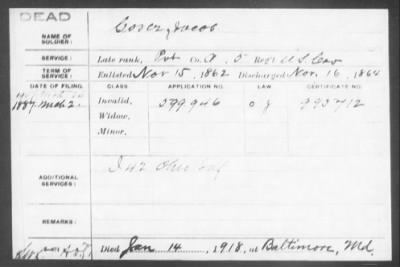 DEAD
NAME OF SOLDIER: Gover, Jacob
SERVICE: Late rank, Pvt Co. A, 5 Reg't U.S. Cav
TERM OF SERVICE: Enlisted Nov 15, 1862 Discharged Nov. 16, 1864
DATE OF FILING. CLASS APPLICATION NO. LAW CERTIFICATE NO.
1887 Mch 2. Invalid, 599946 993712
Widow,
Minor,
ADDITIONAL SERVICES: Ohio Inf
REMARKS:
Died Jan 14, 1918, at Baltimore, Md.